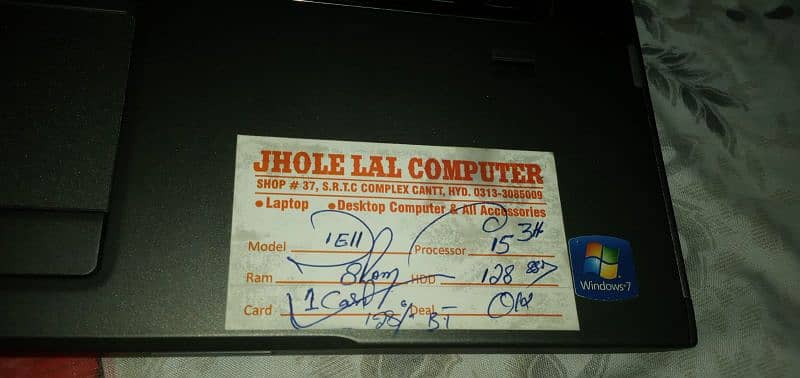 JHOLE LAL COMPUTER
SHOP # 37, S.R.T.C COMPLEX CANTT, HYD. 0313-3085009
• Laptop • Desktop Computer & All Accessories
Model Processor 15 3H
Ram 8 HDD 128
Card 1 Card Deal
Windows 7